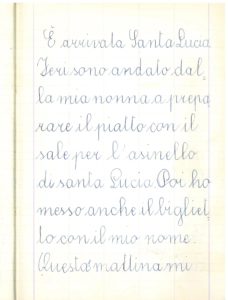 È arrivata Santa Lucia
Ieri sono andato dal-
la mia nonna a prepa
rare il piatto con il
sale per l'asinello
di santa Lucia. Poi ho
messo anche il bigliet-
to con il mio nome.
Questa mattina mi